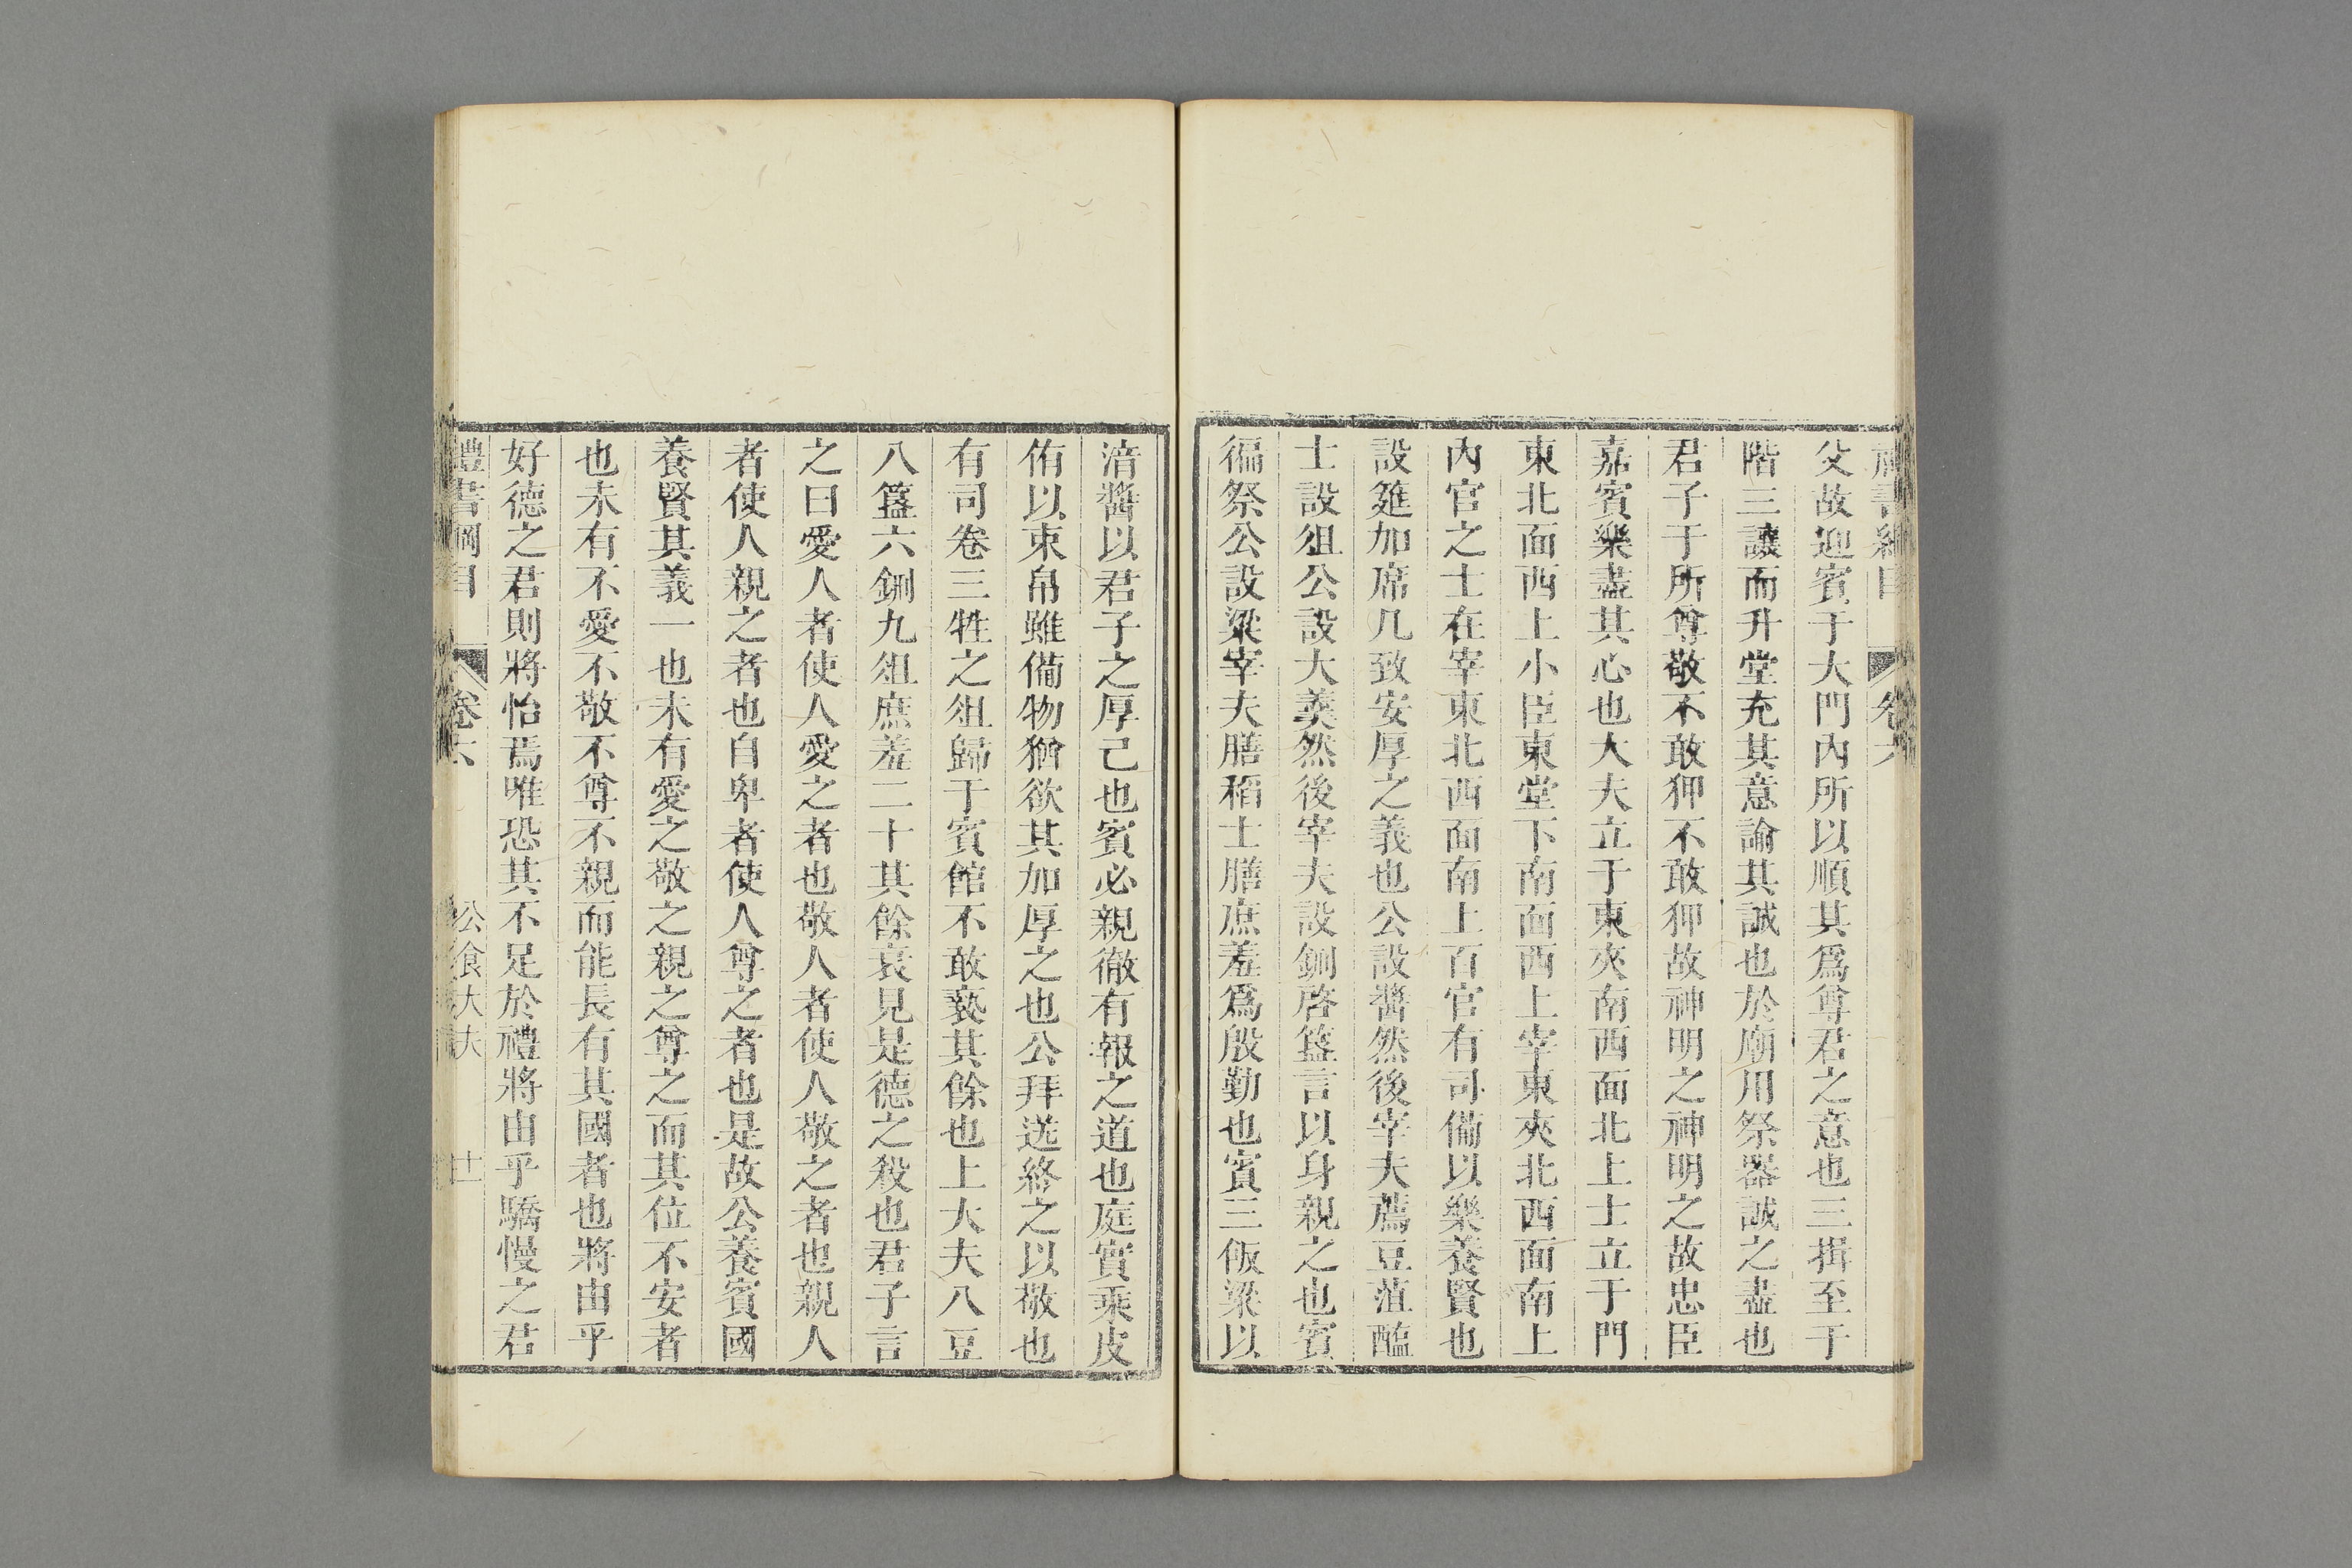 禮書綱目 卷六
父故迎賓于大門內所以順其爲尊君之意也三揖至于
階三讓而升堂充其意諭其誠也於廟用祭器誠之盡也
君子于所尊敬不敢狎不敢狎故神明之神明之故忠臣
嘉賓樂盡其心也大夫立于東夾南西面北上士立于門
東北面西上小臣東堂下南面西上宰東夾北西面南上
內官之士在宰東北西面南上百官有司備以樂養賢也
設筵加席几致安厚之義也公設醬然後宰夫薦豆菹醢
士設俎公設大羹然後宰夫設鉶啓簋言以身親之也賓
徧祭公設粱宰夫膳稻士膳庶羞爲殷勤也賓三飯粱以
湆醬以君子之厚己也賓必親徹有報之道也庭實乘皮
侑以束帛雖備物猶欲其加厚之也公拜送終之以敬也
有司卷三牲之俎歸于賓館不敢褻其餘也上大夫八豆
八簋六鉶九俎庶羞二十其餘衰見是德之殺也君子言
之曰愛人者使人愛之者也敬人者使人敬之者也親人
者使人親之者也自卑者使人尊之者也是故公養賓國
養賢其義一也未有愛之敬之親之尊之而其位不安者
也未有不愛不敬不尊不親而能長有其國者也將由乎
好德之君則將怡焉唯恐其不足於禮將由乎驕慢之君
禮書綱目 卷六 公食大夫 廿